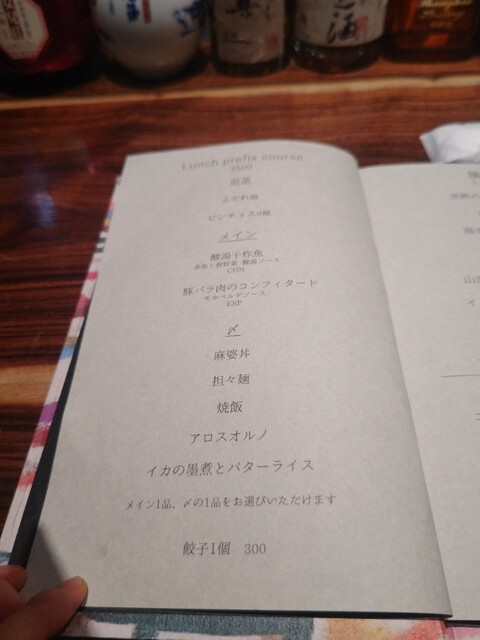 Lunch prefix course
3500
前菜
よだれ鶏
ピンチョス9種
メイン
酸湯子炸魚
CHN
豚バラ肉のコンフィタード
モホベルデソース
ESP
〆
麻婆丼
担々麺
焼飯
アロスオルノ
イカの墨煮とバターライス
メイン1品、〆の1品をお選びいただけます
餃子1個 300